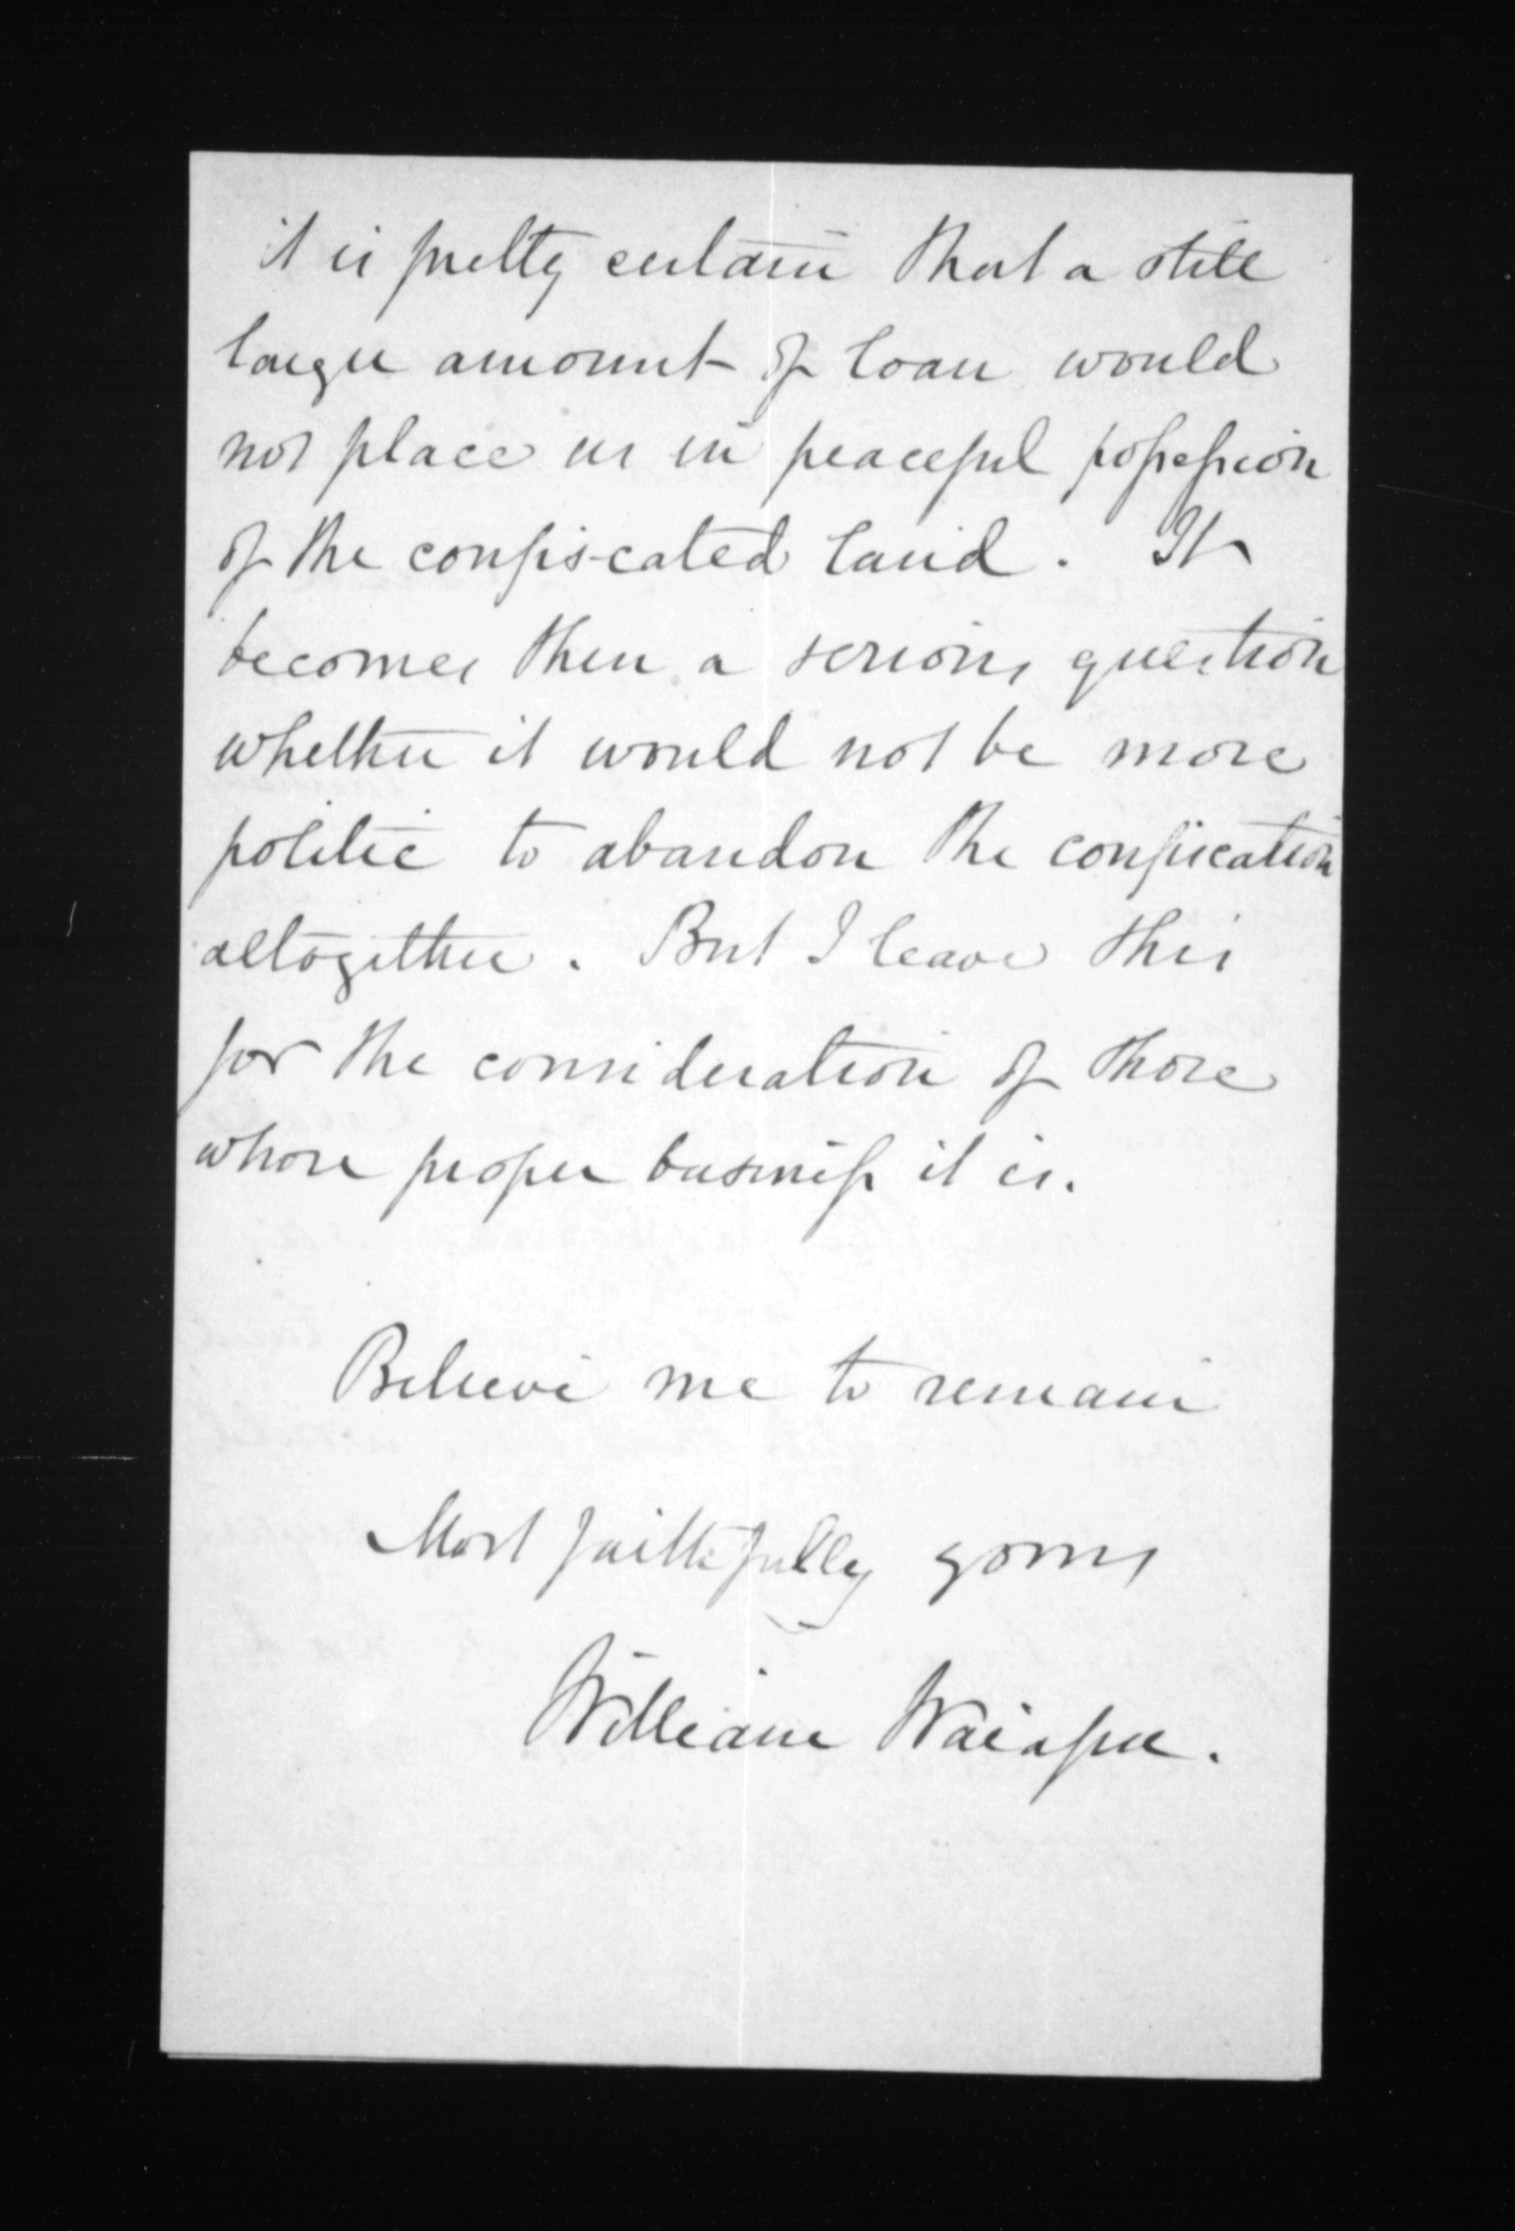 it is pretty certain that a still
larger amount of loan would
not place us in peaceful possession
of the confiscated land. It
becomes then a serious question
whether it would not be more
politic to abandon the confiscation
altogether. But I leave this
for the consideration of those
whose proper business it is.
Believe me to remain
Most faithfully yours
William Waiapu.